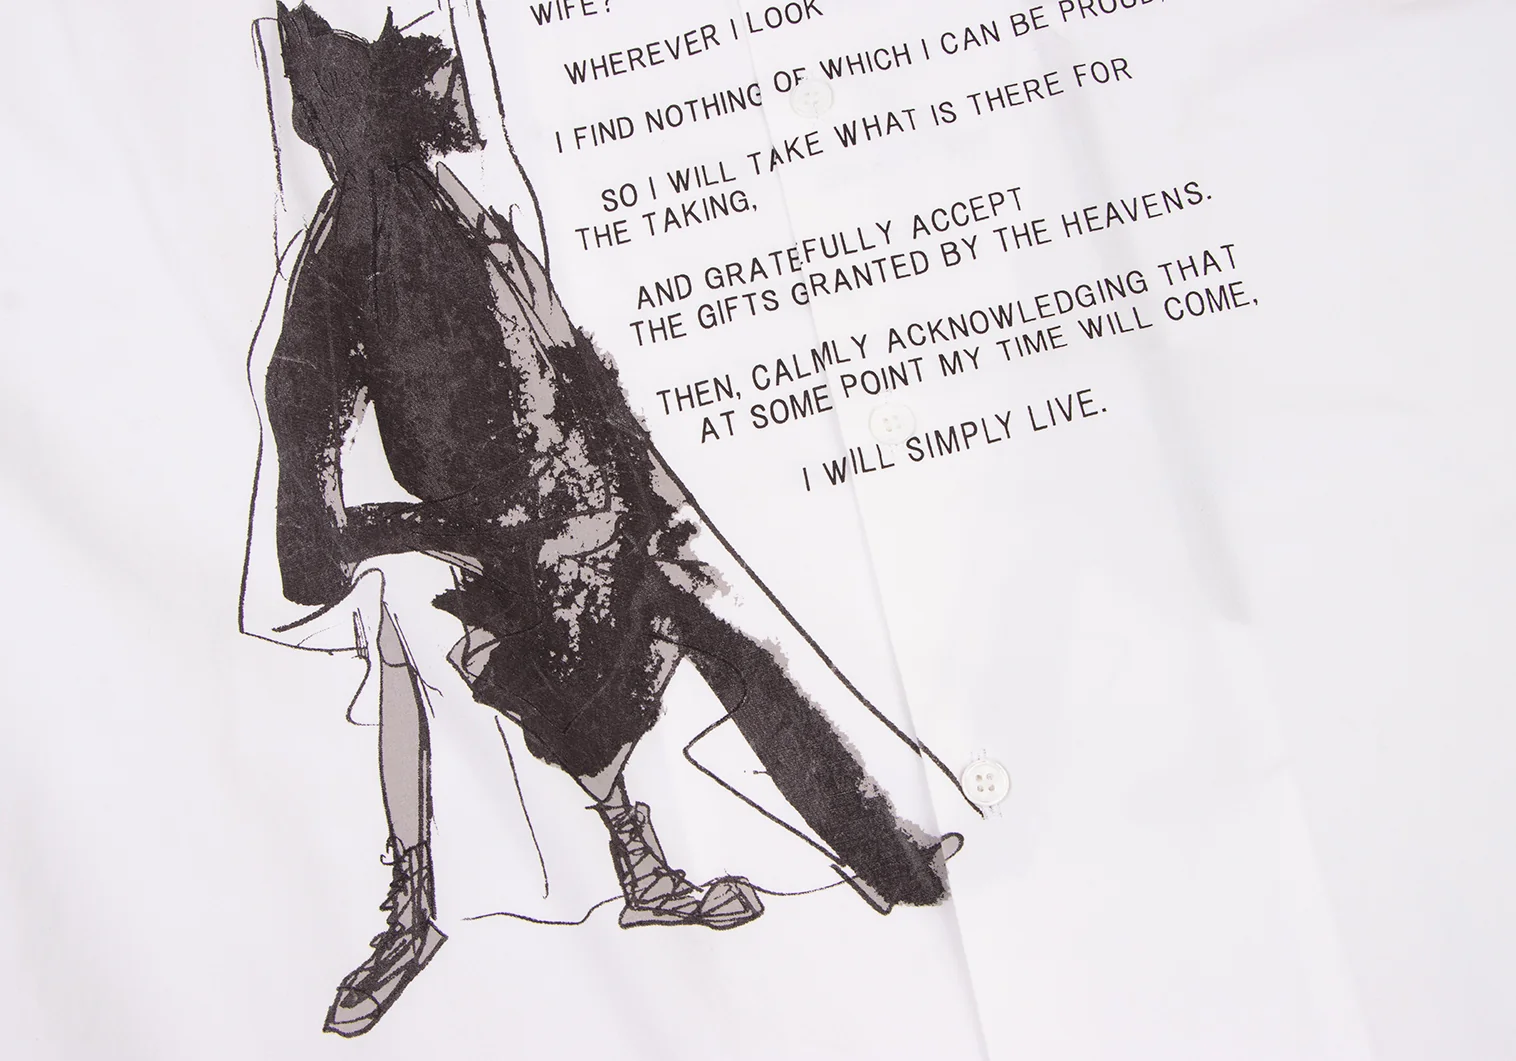 WIFE?
WHEREVER I LOOK
I FIND NOTHING OF WHICH I CAN BE PROUD,
SO I WILL TAKE WHAT IS THERE FOR
THE TAKING,
AND GRATEFULLY ACCEPT
THE GIFTS GRANTED BY THE HEAVENS.
THEN, CALMLY ACKNOWLEDGING THAT
AT SOME POINT MY TIME WILL COME,
I WILL SIMPLY LIVE.